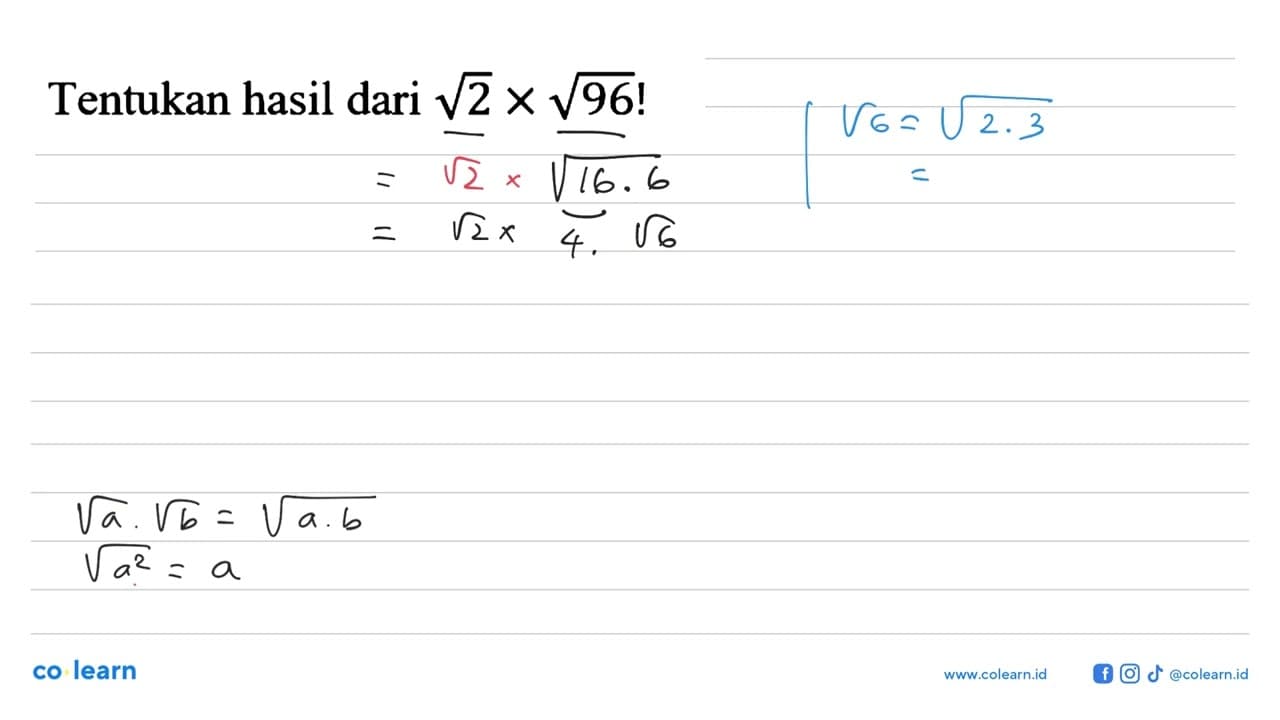 Tentukan hasil dari √2 × √96!
= √2 × √16.6
= √2 × 4. √6
√6 = √2.3
=
√a . √b = √a.b
√a² = a
co learn
www.colearn.id @colearn.id